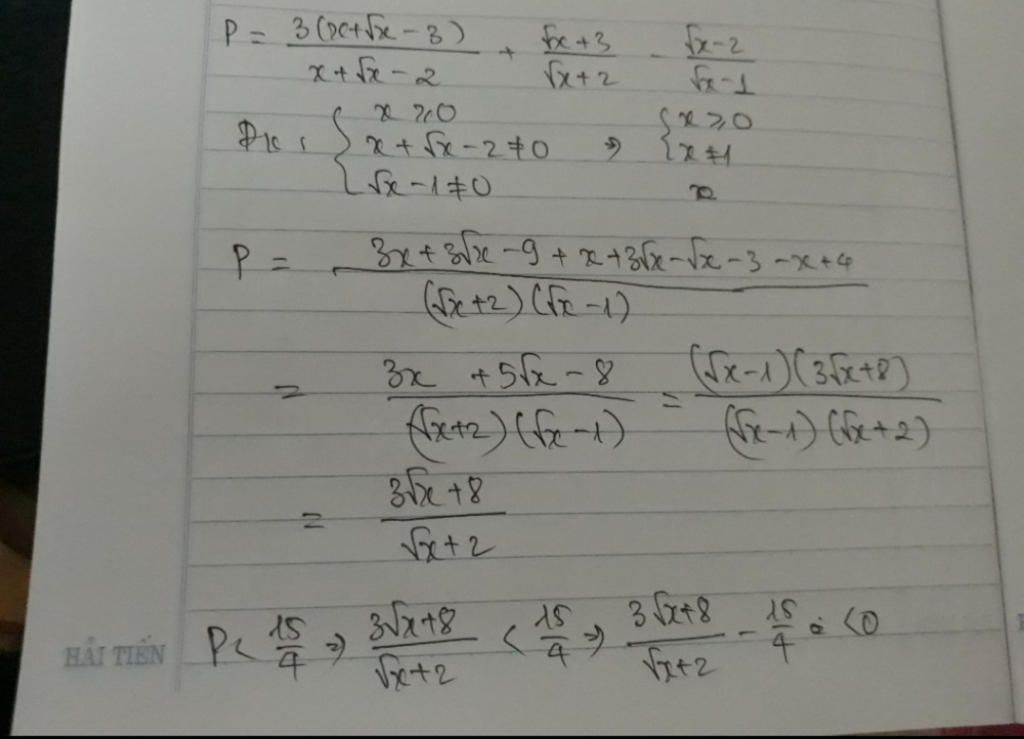 P = 3(x+√x-3)/(x+√x-2) + (√x+3)/(√x+2) - (√x-2)/(√x-1)
Đk: { x ≥ 0 ; x+√x-2 ≠ 0 ; √x-1 ≠ 0 ⇒ { x ≥ 0 ; x ≠ 1
P = (3x+3√x-9+x+3√x-√x-3-x+4)/((√x+2)(√x-1))
= (3x +5√x-8)/((√x+2)(√x-1)) = ((√x-1)(3√x+8))/((√x-1)(√x+2))
= (3√x+8)/(√x+2)
P < 15/4 ⇒ (3√x+8)/(√x+2) < 15/4 ⇒ (3√x+8)/(√x+2) - 15/4 < 0
HẢI TIẾN